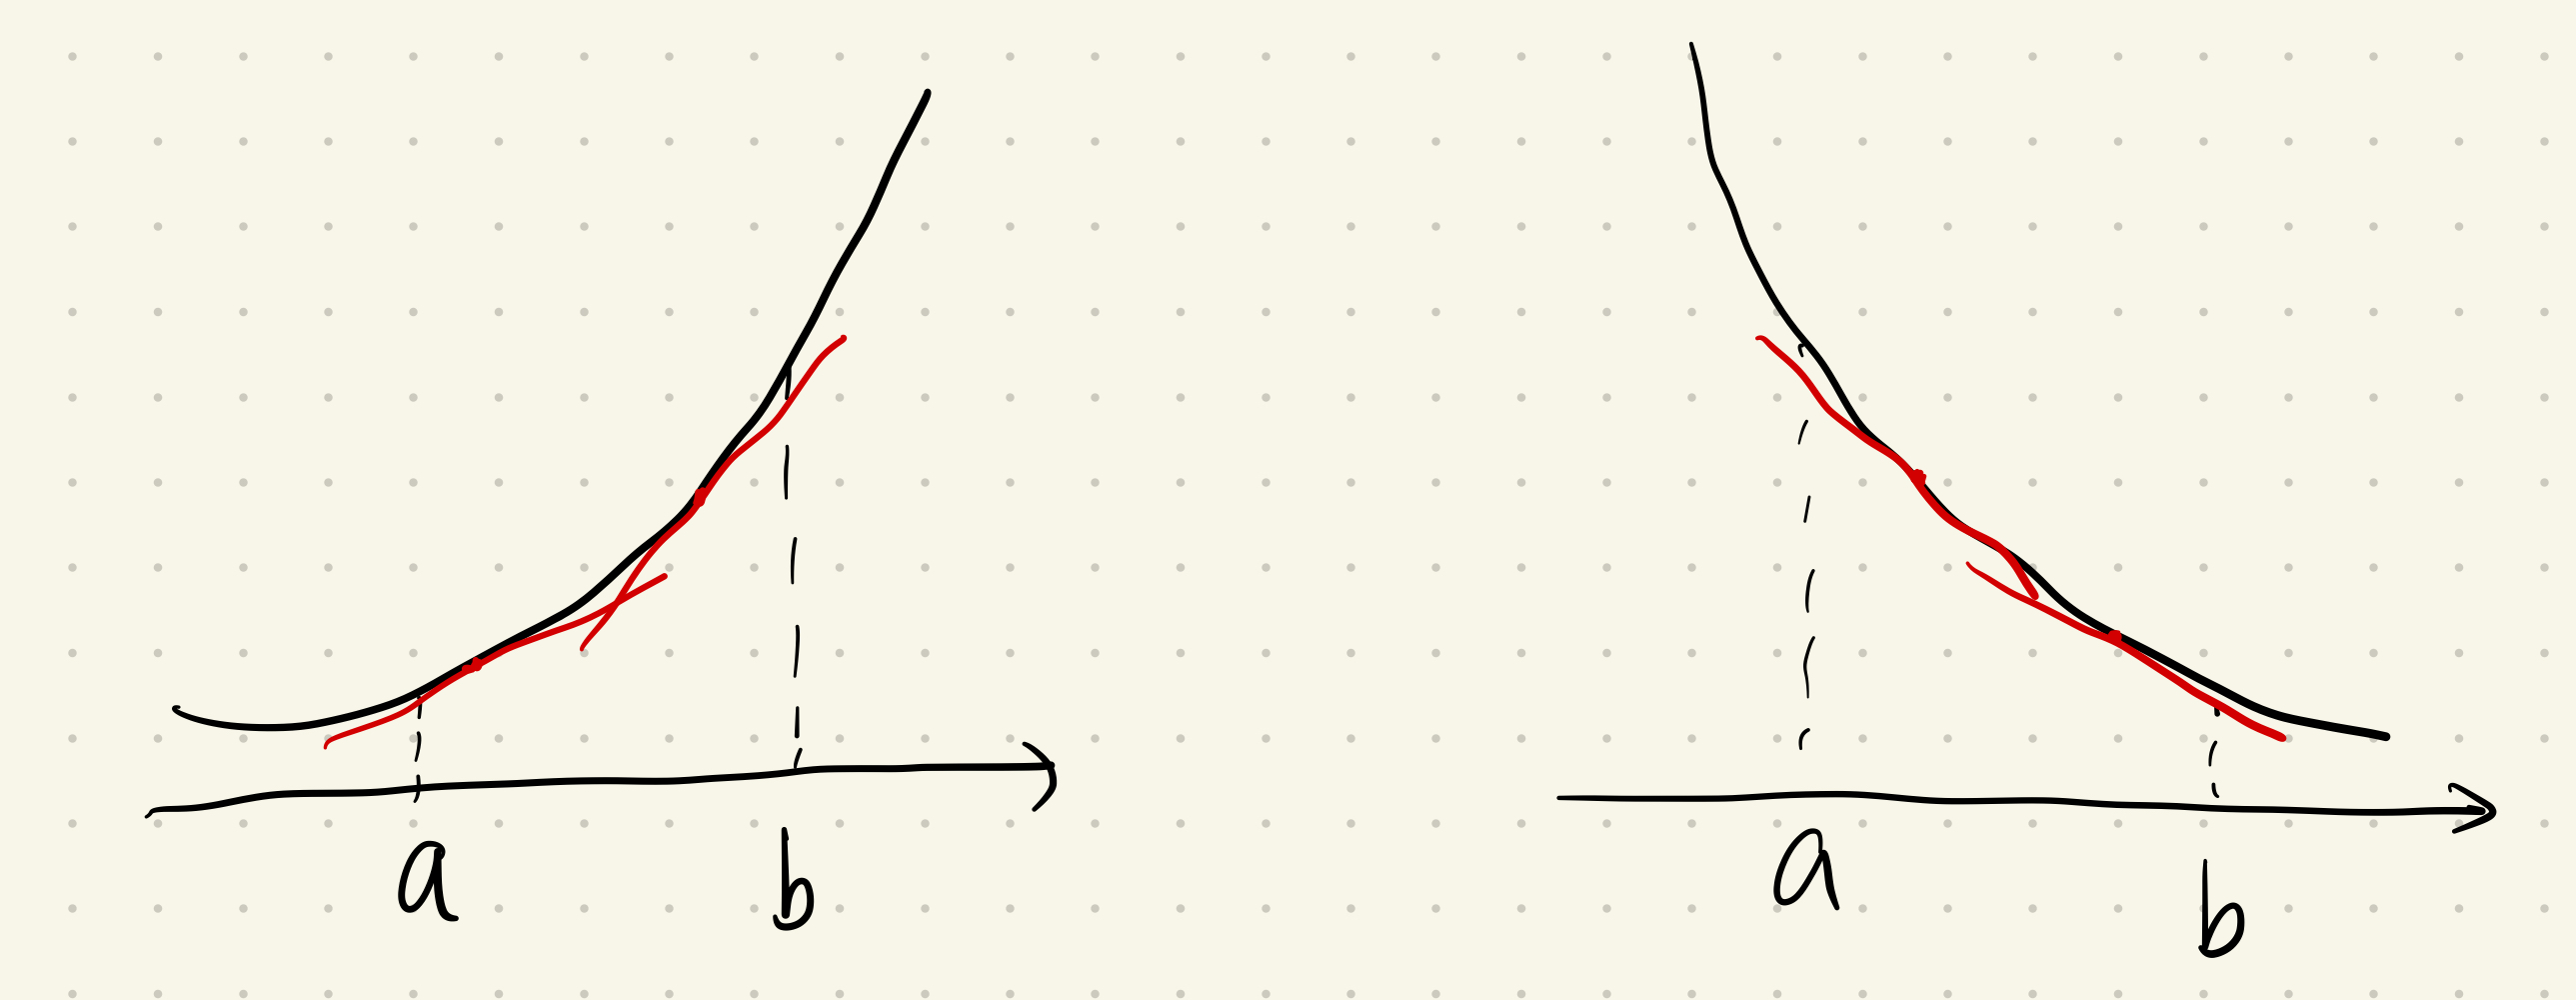 a b a b